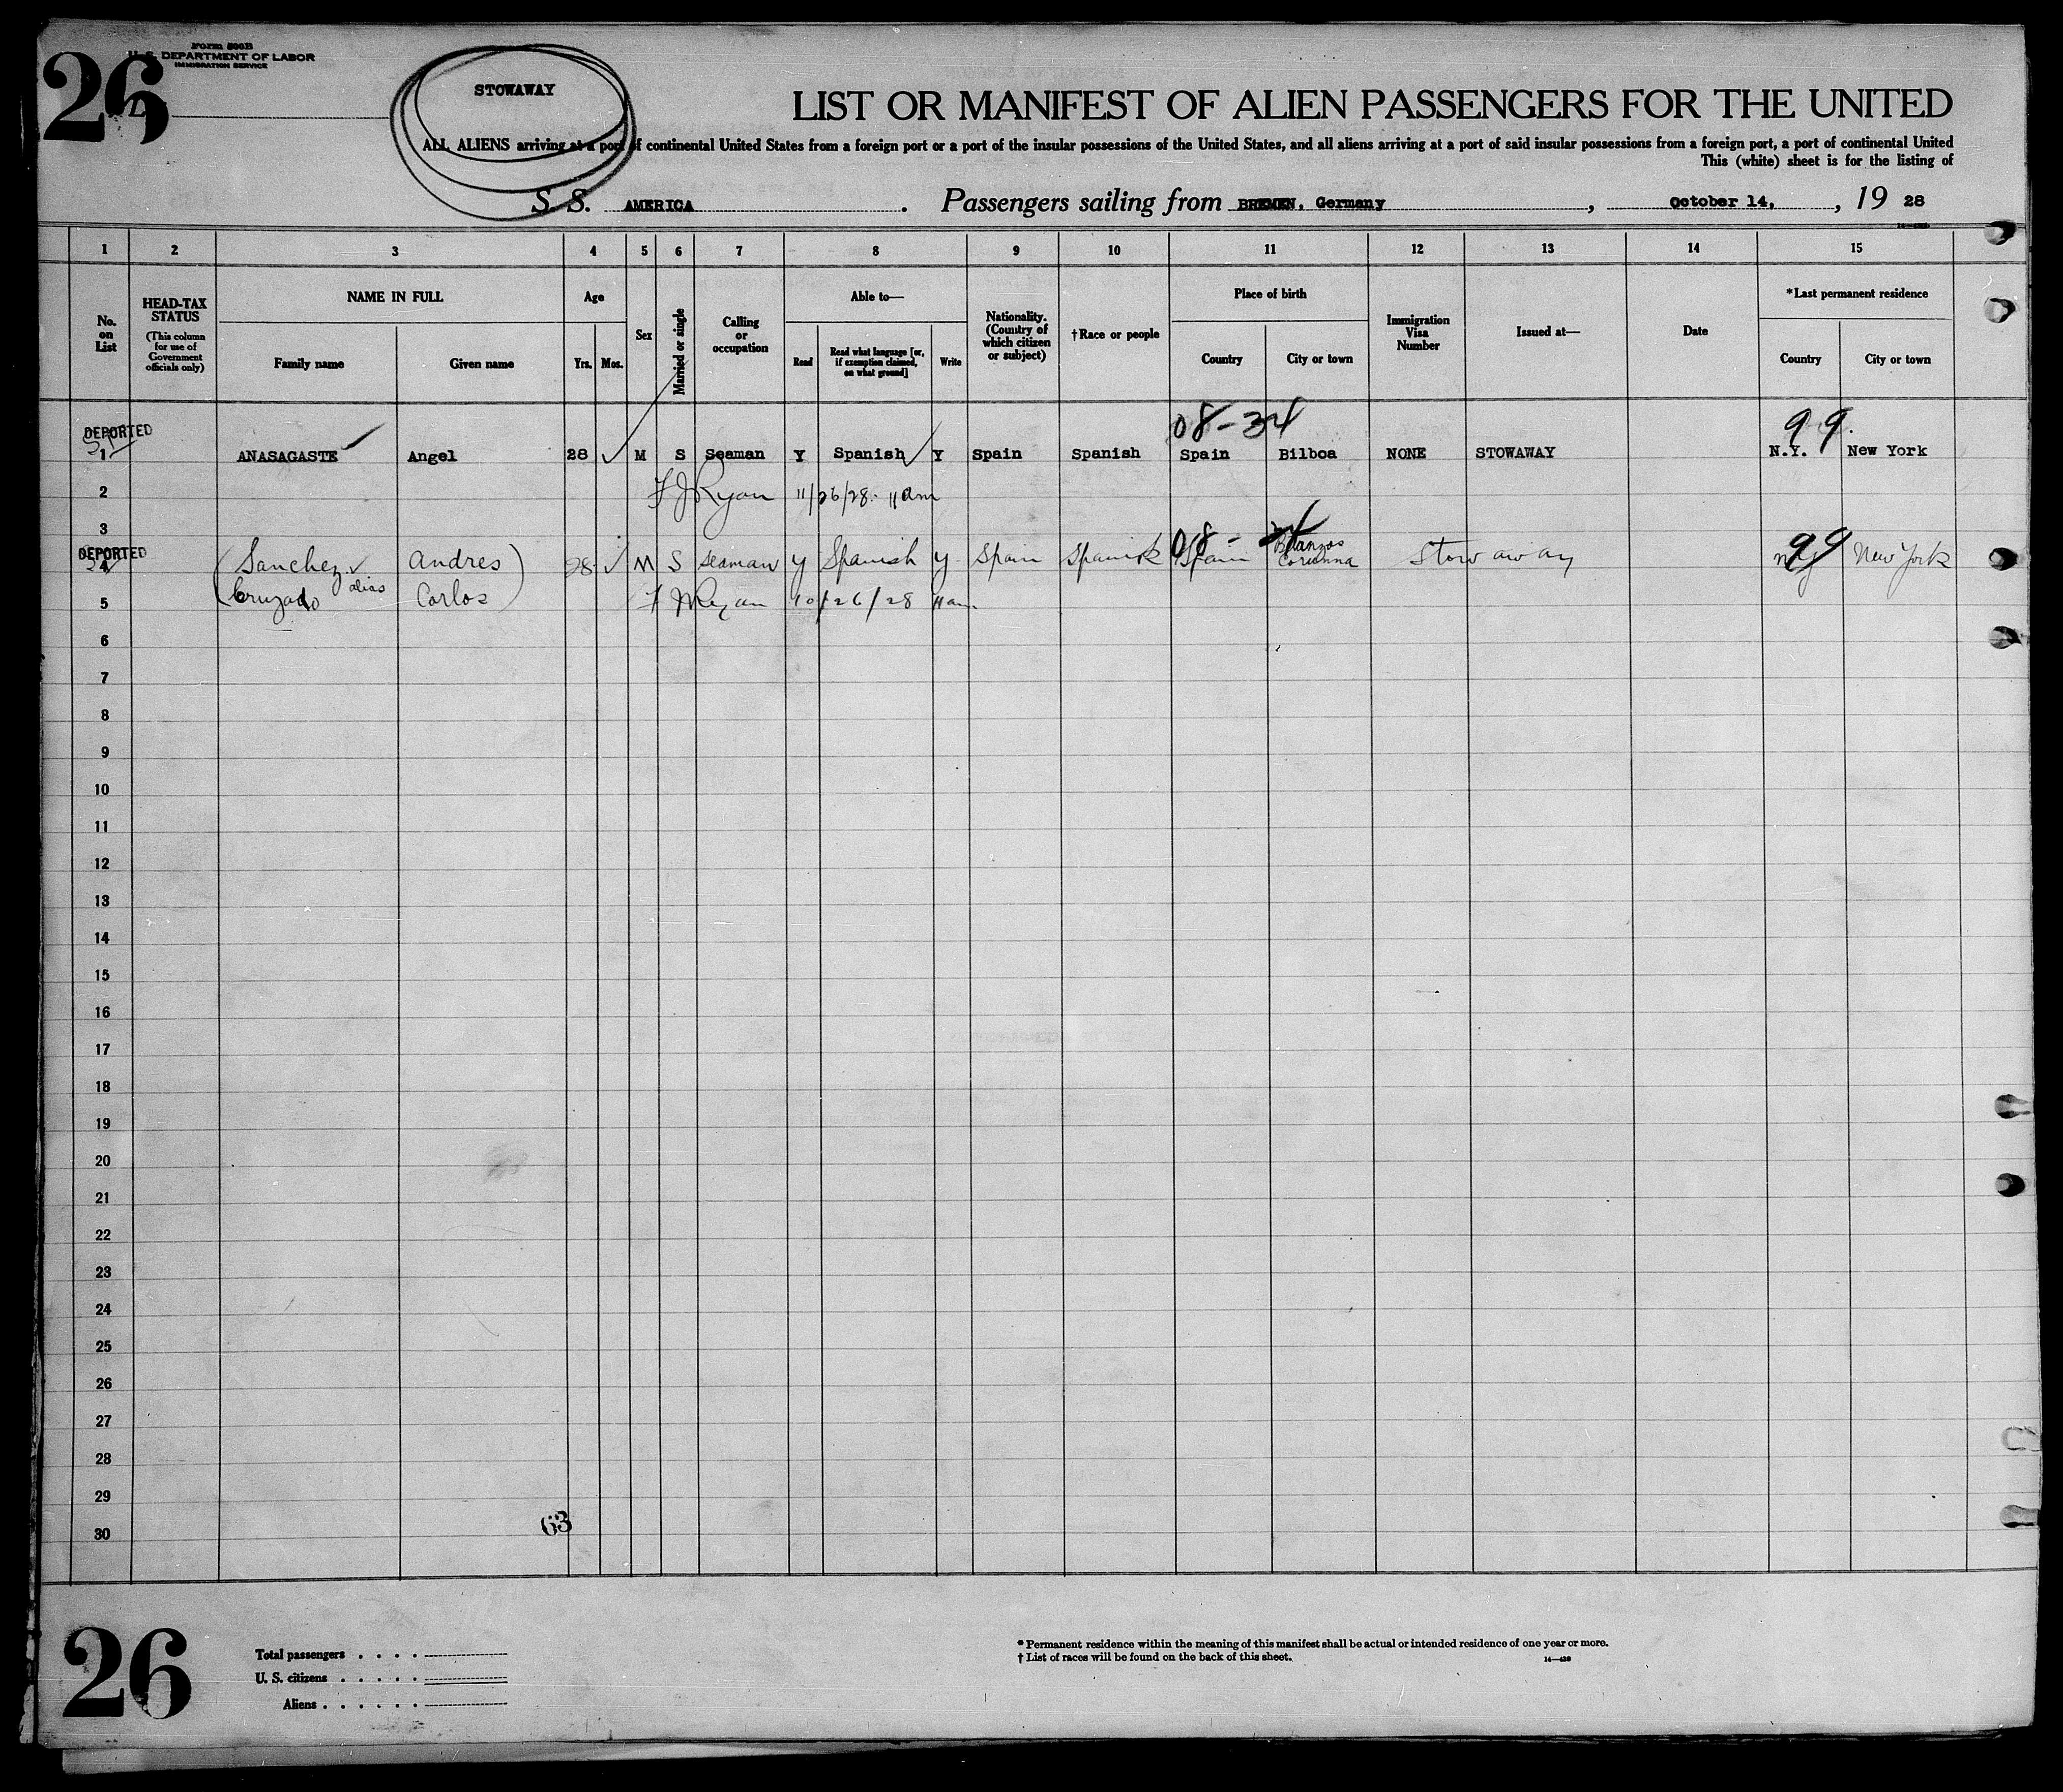 Form 500B
U. S. DEPARTMENT OF LABOR
IMMIGRATION SERVICE
26
STOWAWAY
LIST OR MANIFEST OF ALIEN PASSENGERS FOR THE UNITED
ALL ALIENS arriving at a port of continental United States from a foreign port or a port of the insular possessions of the United States, and all aliens arriving at a port of said insular possessions from a foreign port, a port of continental United
This (white) sheet is for the listing of
S. S. AMERICA. Passengers sailing from BREMEN, Germany, October 14, , 19 28
1 2 3 4 5 6 7 8 9 10 11 12 13 14 15
No. on List
HEAD-TAX STATUS
(This column for use of Government officials only)
NAME IN FULL
Family name Given name
Age
Yrs. Mos.
Sex
Married or single
Calling or occupation
Able to—
Read
Read what language [or, if exemption claimed, on what ground]
Write
Nationality. (Country of which citizen or subject)
†Race or people
Place of birth
Country City or town
Immigration Visa Number
Issued at—
Date
*Last permanent residence
Country City or town
DEPORTED 08-34 99.
1 ANASAGASTE Angel 28 M S Seaman Y Spanish Y Spain Spanish Spain Bilboa NONE STOWAWAY N.Y. New York
2 F J Ryan 11/26/28. 11 am
3
DEPORTED 08- 34 99
4 (Sanchez alias Andres) 28 M S Seaman y Spanish y Spain Spanish Spain Corunna Stowaway ny New York
5 (Cruzado Carlos) F J Ryan 10/26/28 11 am.
6
7
8
9
10
11
12
13
14
15
16
17
18
19
20
21
22
23
24
25
26
27
28
29
30
63
26
Total passengers . . . .
U. S. citizens . . . . .
Aliens . . . . . .
* Permanent residence within the meaning of this manifest shall be actual or intended residence of one year or more.
† List of races will be found on the back of this sheet.